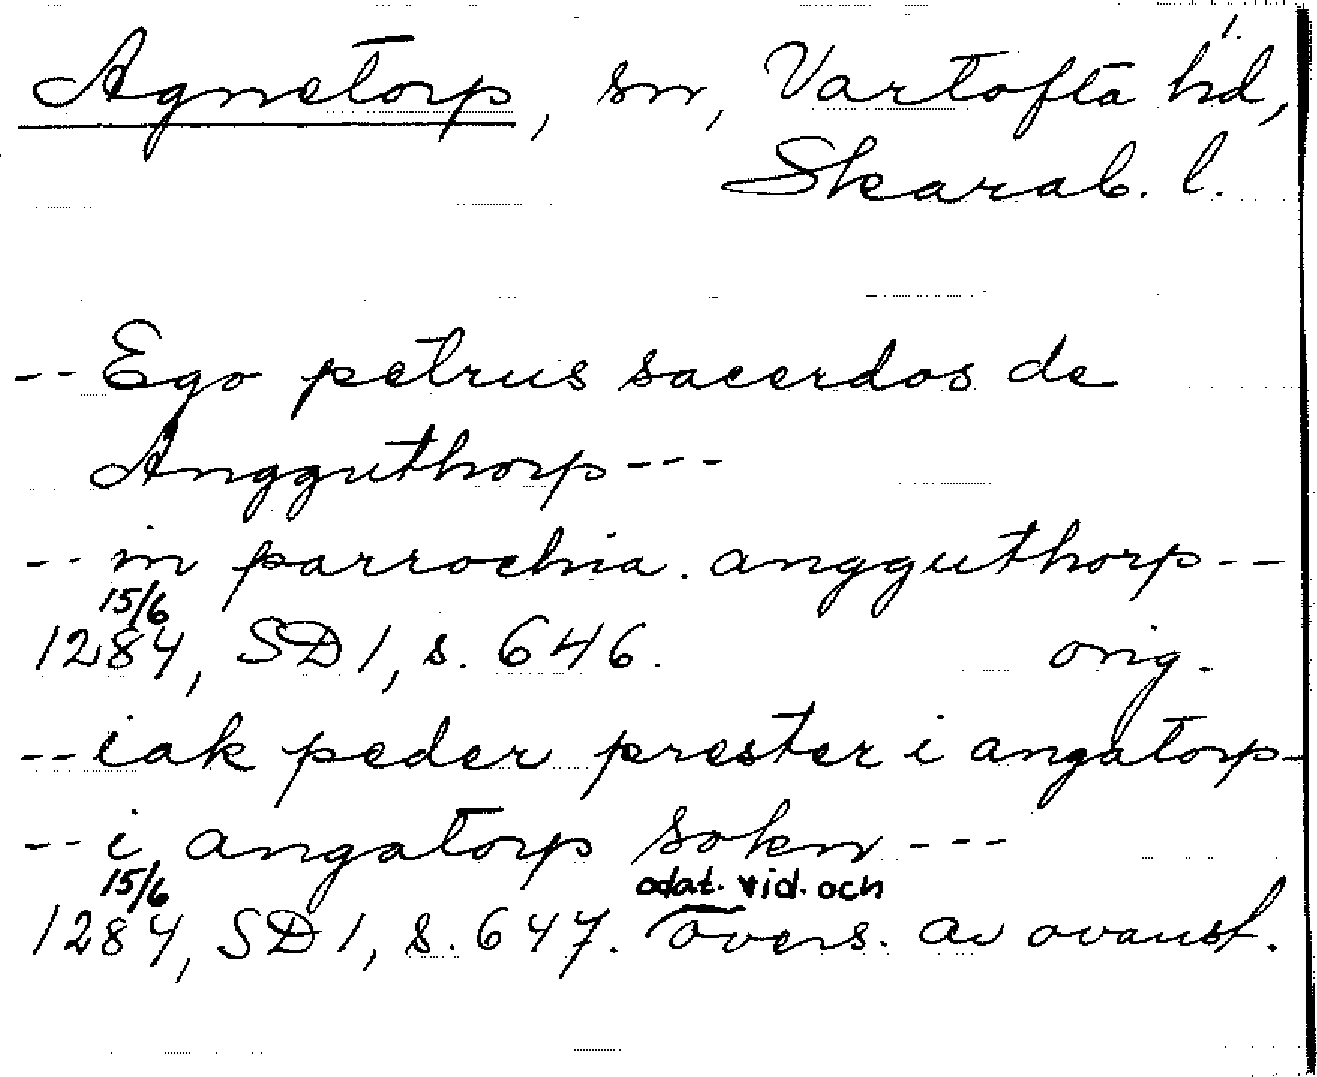 1.
Agnetorp, sn, Vartofta hd,
Skarab. l.
-- Ego petrus sacerdos de
Angguthorp ---
-- in parrochia. angguthorp --
15/6
1284, SD 1, s. 646. orig.
-- iak peder prester i angatorp -
-- i angatorp sokn ---
15/6 odat. vid. och
1284, SD 1, s. 647. övers. av ovanst.